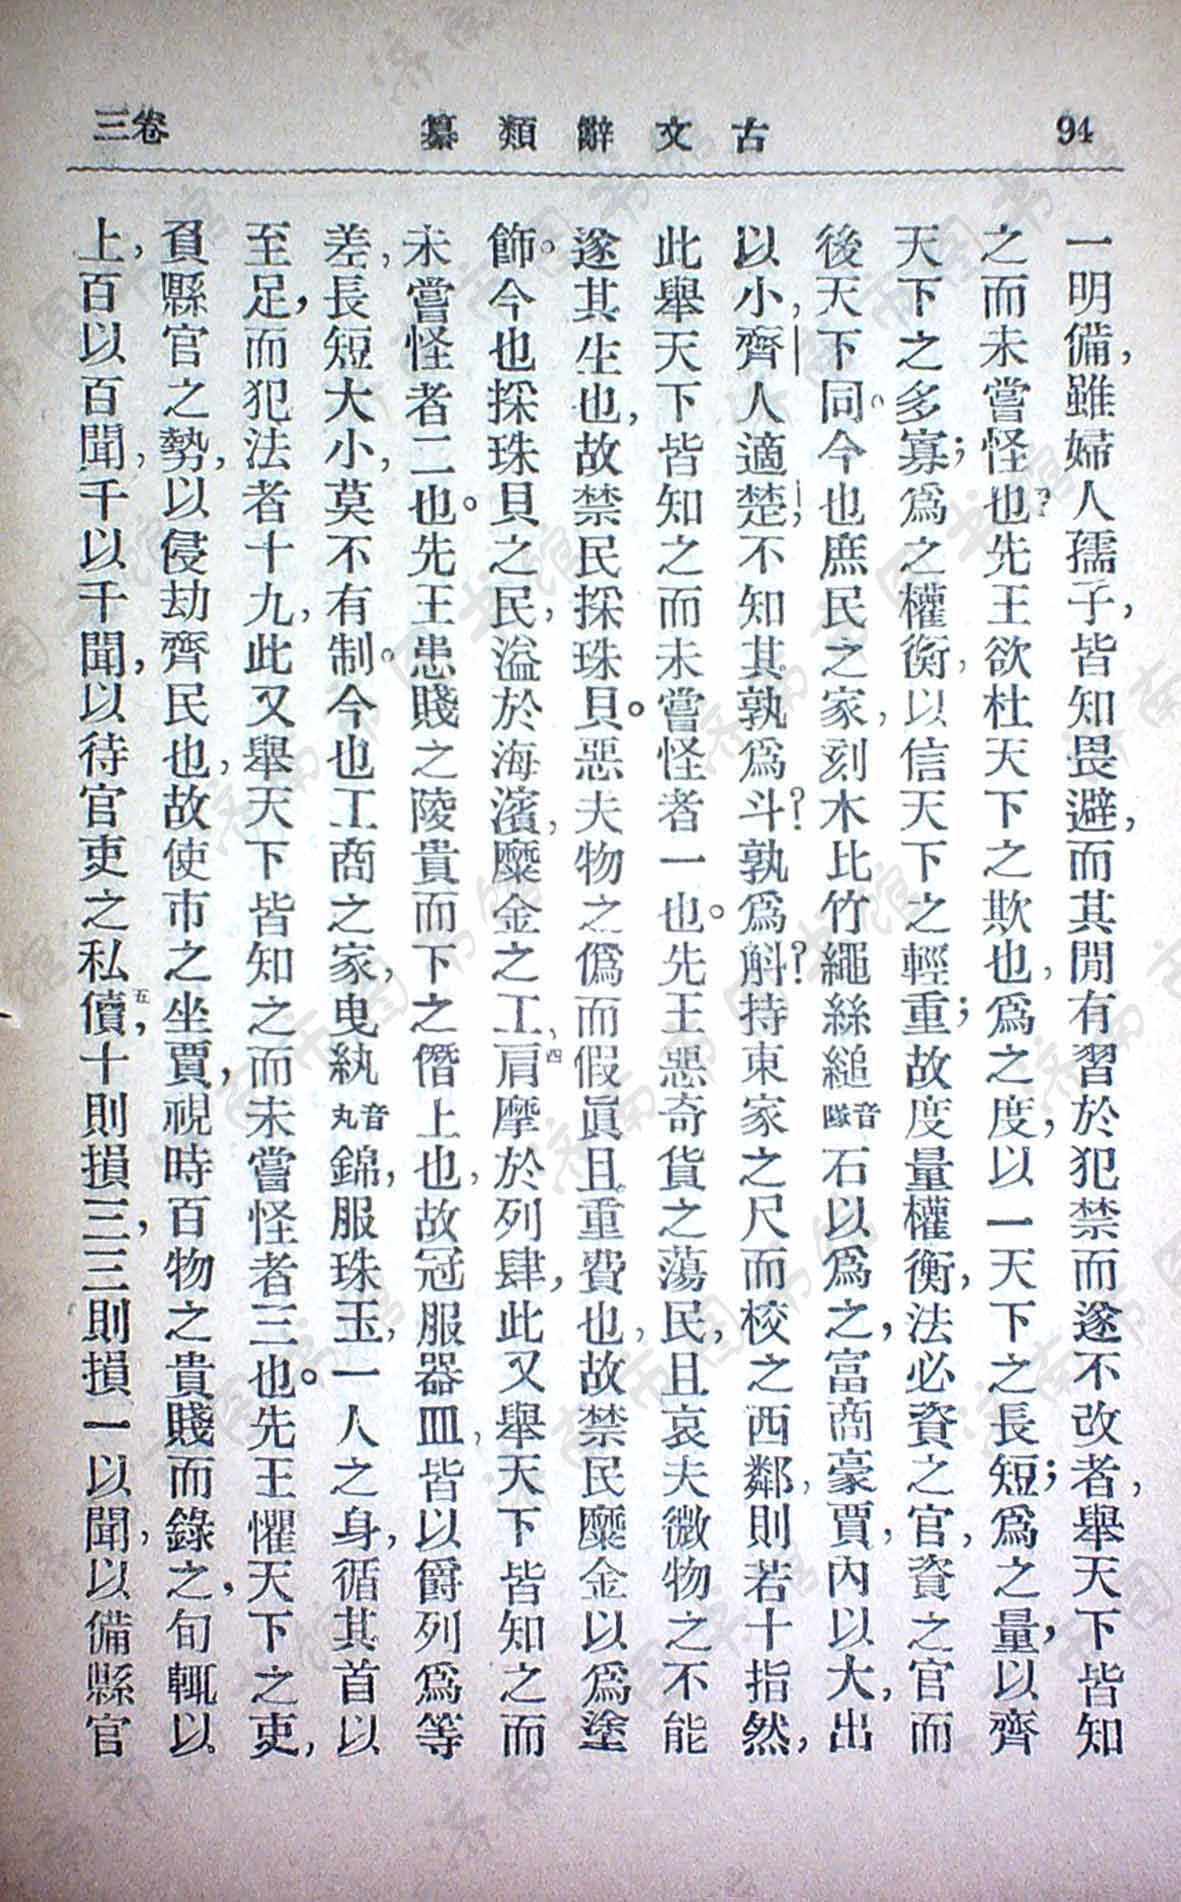 94
古文辭類纂
卷三
一明備,雖婦人孺子,皆知畏避,而其閒有習於犯禁而遂不改者,舉天下皆知
之而未嘗怪也?先王欲杜天下之欺也,爲之度,以一天下之長短;爲之量,以齊
天下之多寡;爲之權衡,以信天下之輕重;故度量權衡,法必資之官,資之官而
後天下同。今也庶民之家,刻木比竹繩絲縋音隊石以爲之,富商豪賈,內以大,出
以小,齊人適楚,不知其孰爲斗?孰爲斛?持東家之尺而校之西鄰,則若十指然,
此舉天下皆知之而未嘗怪者一也。先王惡奇貨之蕩民,且哀夫微物之不能
遂其生也,故禁民採珠貝。惡夫物之僞而假眞且重費也,故禁民糜金以爲塗
飾。今也採珠貝之民,溢於海濱,糜金之工,四肩摩於列肆,此又舉天下皆知之而
未嘗怪者二也。先王患賤之陵貴而下之僭上也,故冠服器皿,皆以爵列爲等
差,長短大小,莫不有制。今也工商之家,曳紈音丸錦,服珠玉,一人之身,循其首以
至足,而犯法者十九,此又舉天下皆知之而未嘗怪者三也。先王懼天下之吏,
負縣官之勢,以侵劫齊民也,故使市之坐賈,視時百物之貴賤而錄之,旬輒以
上,百以百聞,千以千聞,以待官吏之私儥,五十則損三,三則損一以聞,以備縣官
济南市图书馆